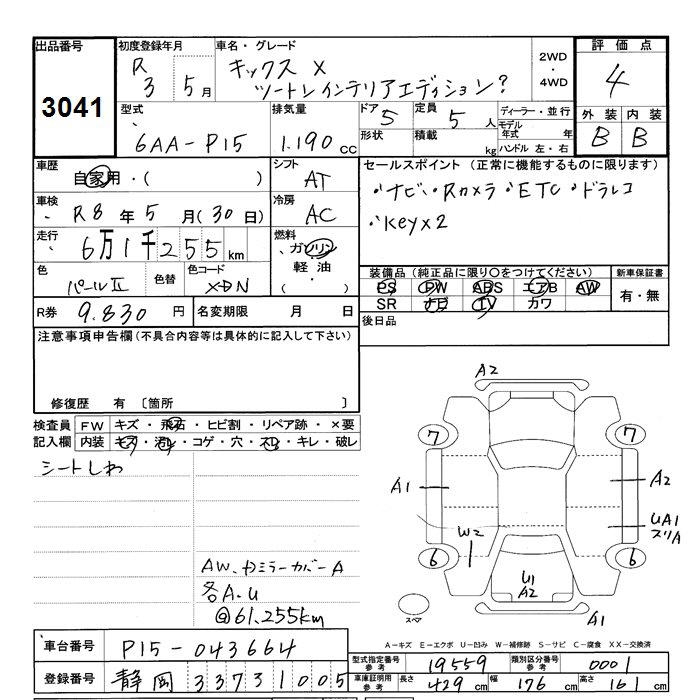 出品番号 3041
初度登録年月 R3 5月
車名・グレード キックス X ツートンインテリアエディション?
2WD・4WD
評価点 4
型式 6AA-P15
排気量 1.190 cc
ドア 5
定員 5人
形状
積載 kg
ディーラー・並行
モデル年式 年
ハンドル 左・右
外装 B 内装 B
車歴 自家用・( )
シフト AT
セールスポイント (正常に機能するものに限ります)
・ナビ・Rカメラ・ETC・ドラレコ
・Key×2
車検 R8年5月(30日)
冷房 AC
走行 6万1千255km
燃料 ガソリン 軽油・( )
色 パールⅡ
色替
色コード XDN
装備品 (純正品に限り○をつけてください)
PS PW ABS エアB AW
SR ナビ TV カワ
新車保証書 有・無
R券 9.830円
名変期限 月 日
後日品
注意事項申告欄(不具合内容等は具体的に記入して下さい)
修復歴 有 〔箇所 〕
検査員記入欄
FW キズ・飛石・ヒビ割・リペア跡・×要
内装 キズ・汚れ・コゲ・穴・スレ・キレ・破レ
シートしわ
AW、ドミラーカバーA
各A.U
@61.255km
A2
7 7
A1 A2
UA1
スリA
W2
6 6
U1
A2
スペア
A1
A-キズ E-エクボ U-凹み W-補修跡 S-サビ C-腐食 XX-交換済
車台番号 P15-043664
登録番号 静岡 337 3 1005
型式指定番号 参考 19559
類別区分番号 参考 0001
車庫証明用 参考 長さ 429 cm 幅 176 cm 高さ 161 cm